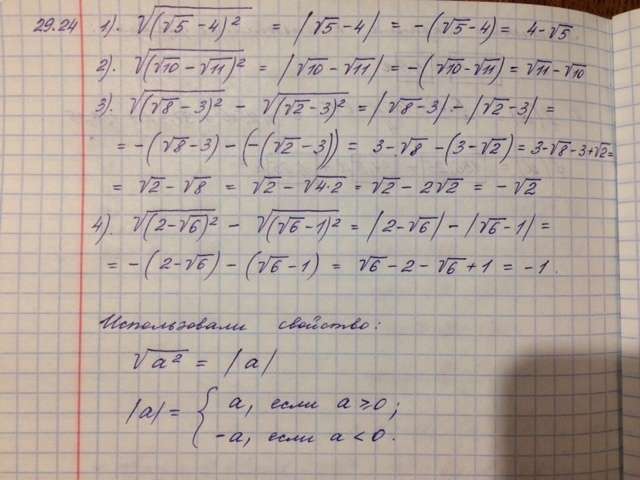 29.24 1). √(√5 - 4)² = |√5 - 4| = -(√5 - 4) = 4 - √5
2). √(√10 - √11)² = |√10 - √11| = -(√10 - √11) = √11 - √10
3). √(√8 - 3)² - √(√2 - 3)² = |√8 - 3| - |√2 - 3| =
= -(√8 - 3) - (-(√2 - 3)) = 3 - √8 - (3 - √2) = 3 - √8 - 3 + √2 =
= √2 - √8 = √2 - √4·2 = √2 - 2√2 = -√2
4). √(2 - √6)² - √(√6 - 1)² = |2 - √6| - |√6 - 1| =
= -(2 - √6) - (√6 - 1) = √6 - 2 - √6 + 1 = -1.
Использовали свойство:
√a² = |a|
|a| = { a, если a ≥ 0;
-a, если a < 0.